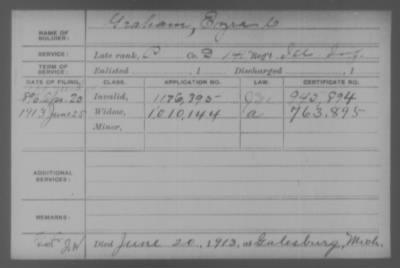 Graham, Ezra C
NAME OF SOLDIER:
SERVICE: Late rank, P Co. 14 Reg't Ill Inf.
TERM OF SERVICE: Enlisted , 1 Discharged , 1
DATE OF FILING. CLASS. APPLICATION NO. LAW. CERTIFICATE NO.
Invalid, 1176,395 943,894
1913 June 25 Widow, 1,010,144 a 763,895
Minor,
ADDITIONAL SERVICES:
REMARKS:
Died June 20, 1913, at Galesburg, Mich.